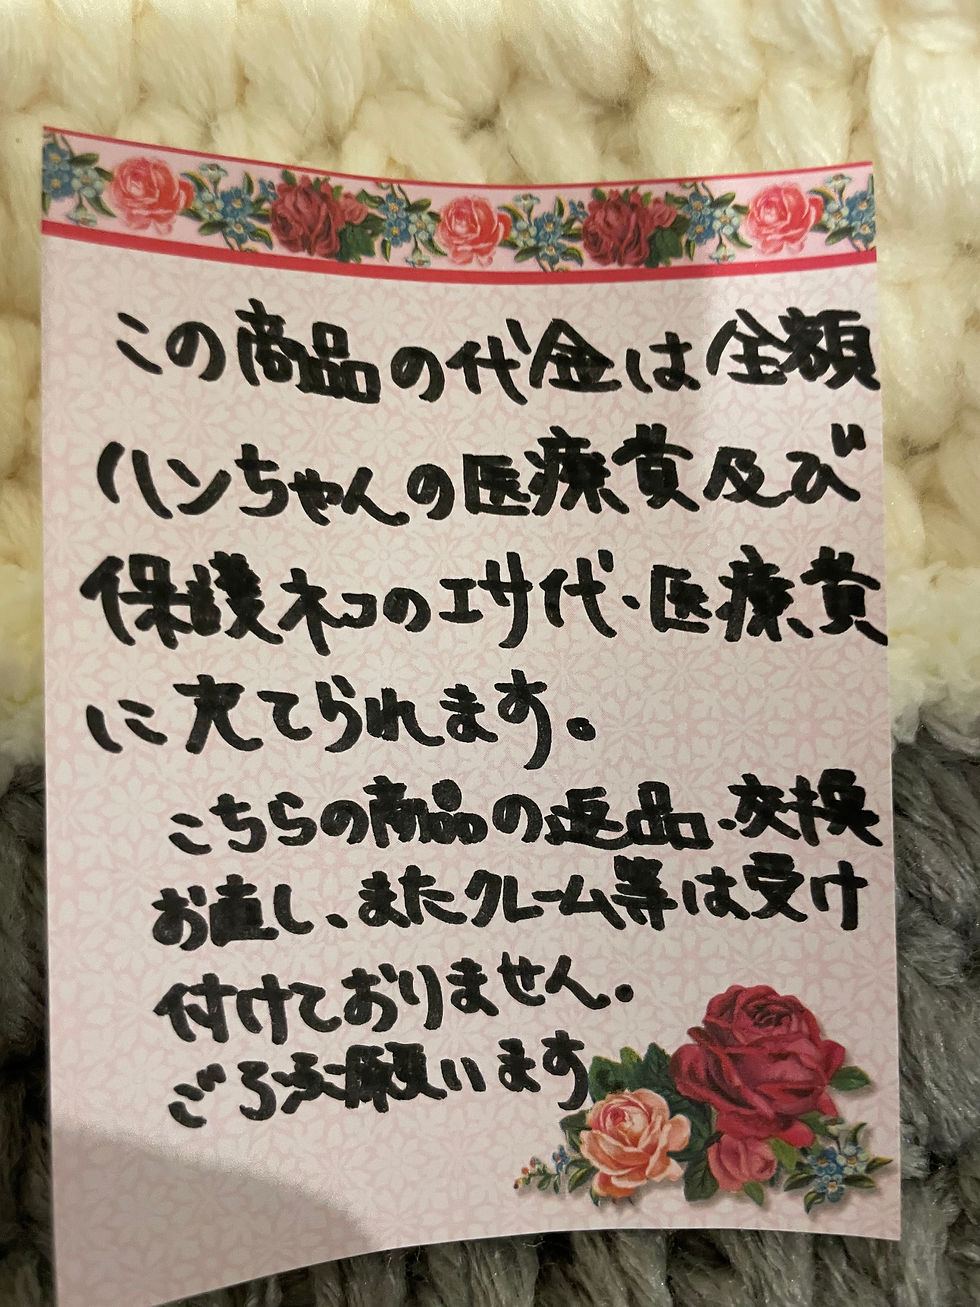 この商品の代金は全額
ハンちゃんの医療費及び
保護ネコのエサ代・医療費
に充てられます。
こちらの商品の返品、交換
お直し、またクレーム等は受け
付けておりません。
ご了承願います